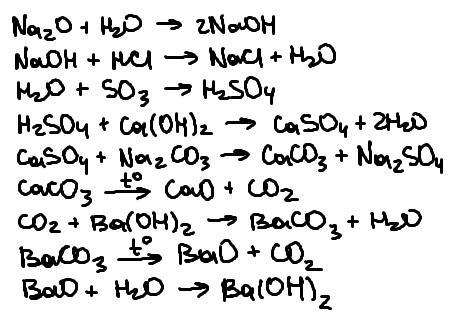 Na₂O + H₂O → 2NaOH
NaOH + HCl → NaCl + H₂O
H₂O + SO₃ → H₂SO₄
H₂SO₄ + Ca(OH)₂ → CaSO₄ + 2H₂O
CaSO₄ + Na₂CO₃ → CaCO₃ + Na₂SO₄
CaCO₃ t° → CaO + CO₂
CO₂ + Ba(OH)₂ → BaCO₃ + H₂O
BaCO₃ t° → BaO + CO₂
BaO + H₂O → Ba(OH)₂